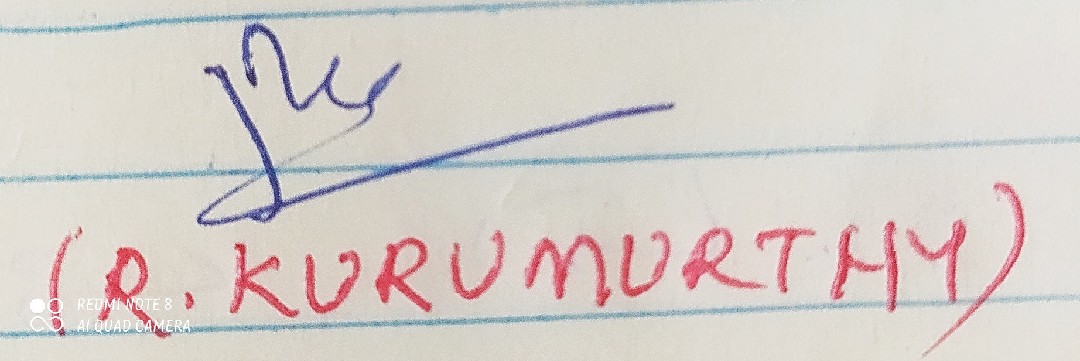 (R. KURUMURTHY)
REDMI NOTE 8
AI QUAD CAMERA